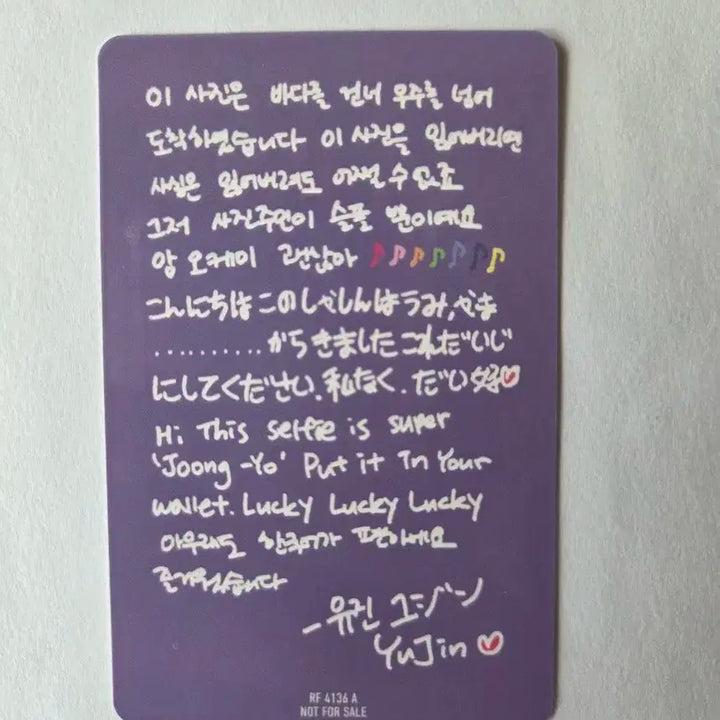 이 사진은 바다를 건너 우주를 넘어
도착하였습니다 이 사진을 잃어버리면
사실은 잃어버려도 어쩔 수 없죠
그저 사진주인이 슬플 뿐이에요
앙 오케이 괜찮아
こんにちは このしゃしんは うみ,やま
.......... からきました これだいじ
にしてください. 私たく. だい好
Hi This selfie is super
'Joong-Yo' Put it In Your
wallet. Lucky Lucky Lucky
아무래도 한국어가 편하네요
즐거웠습니다
- 유진 ユジン
YuJin
RF 4136 A
NOT FOR SALE